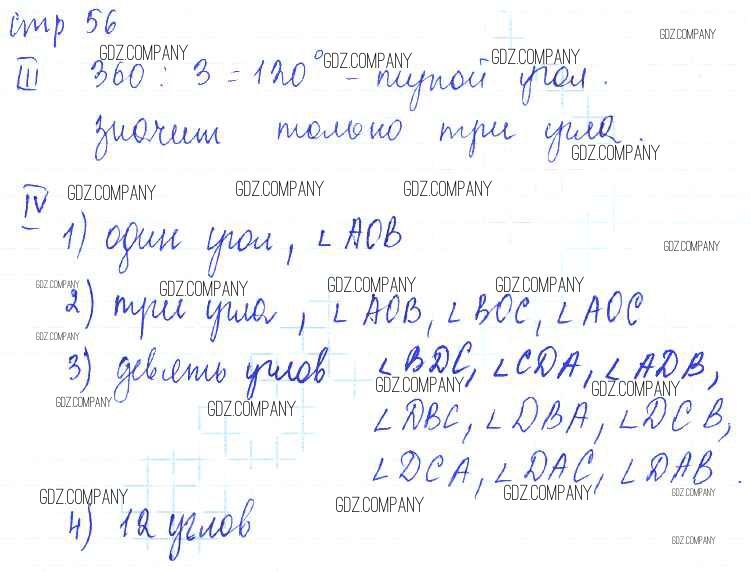 стр 56
GDZ.COMPANY GDZ.COMPANY GDZ.COMPANY
III 360 : 3 = 120° - тупой угол.
значит только три угла.
GDZ.COMPANY
IV GDZ.COMPANY GDZ.COMPANY GDZ.COMPANY
1) один угол, ∠AOB
GDZ.COMPANY
GDZ.COMPANY GDZ.COMPANY GDZ.COMPANY GDZ.COMPANY
2) три угла, ∠AOB, ∠BOC, ∠AOC
GDZ.COMPANY
3) девять углов ∠BDC, ∠CDA, ∠ADB,
GDZ.COMPANY GDZ.COMPANY
GDZ.COMPANY GDZ.COMPANY
∠DBC, ∠DBA, ∠DCB,
∠DCA, ∠DAC, ∠DAB.
GDZ.COMPANY GDZ.COMPANY GDZ.COMPANY GDZ.COMPANY
4) 12 углов
GDZ.COMPANY